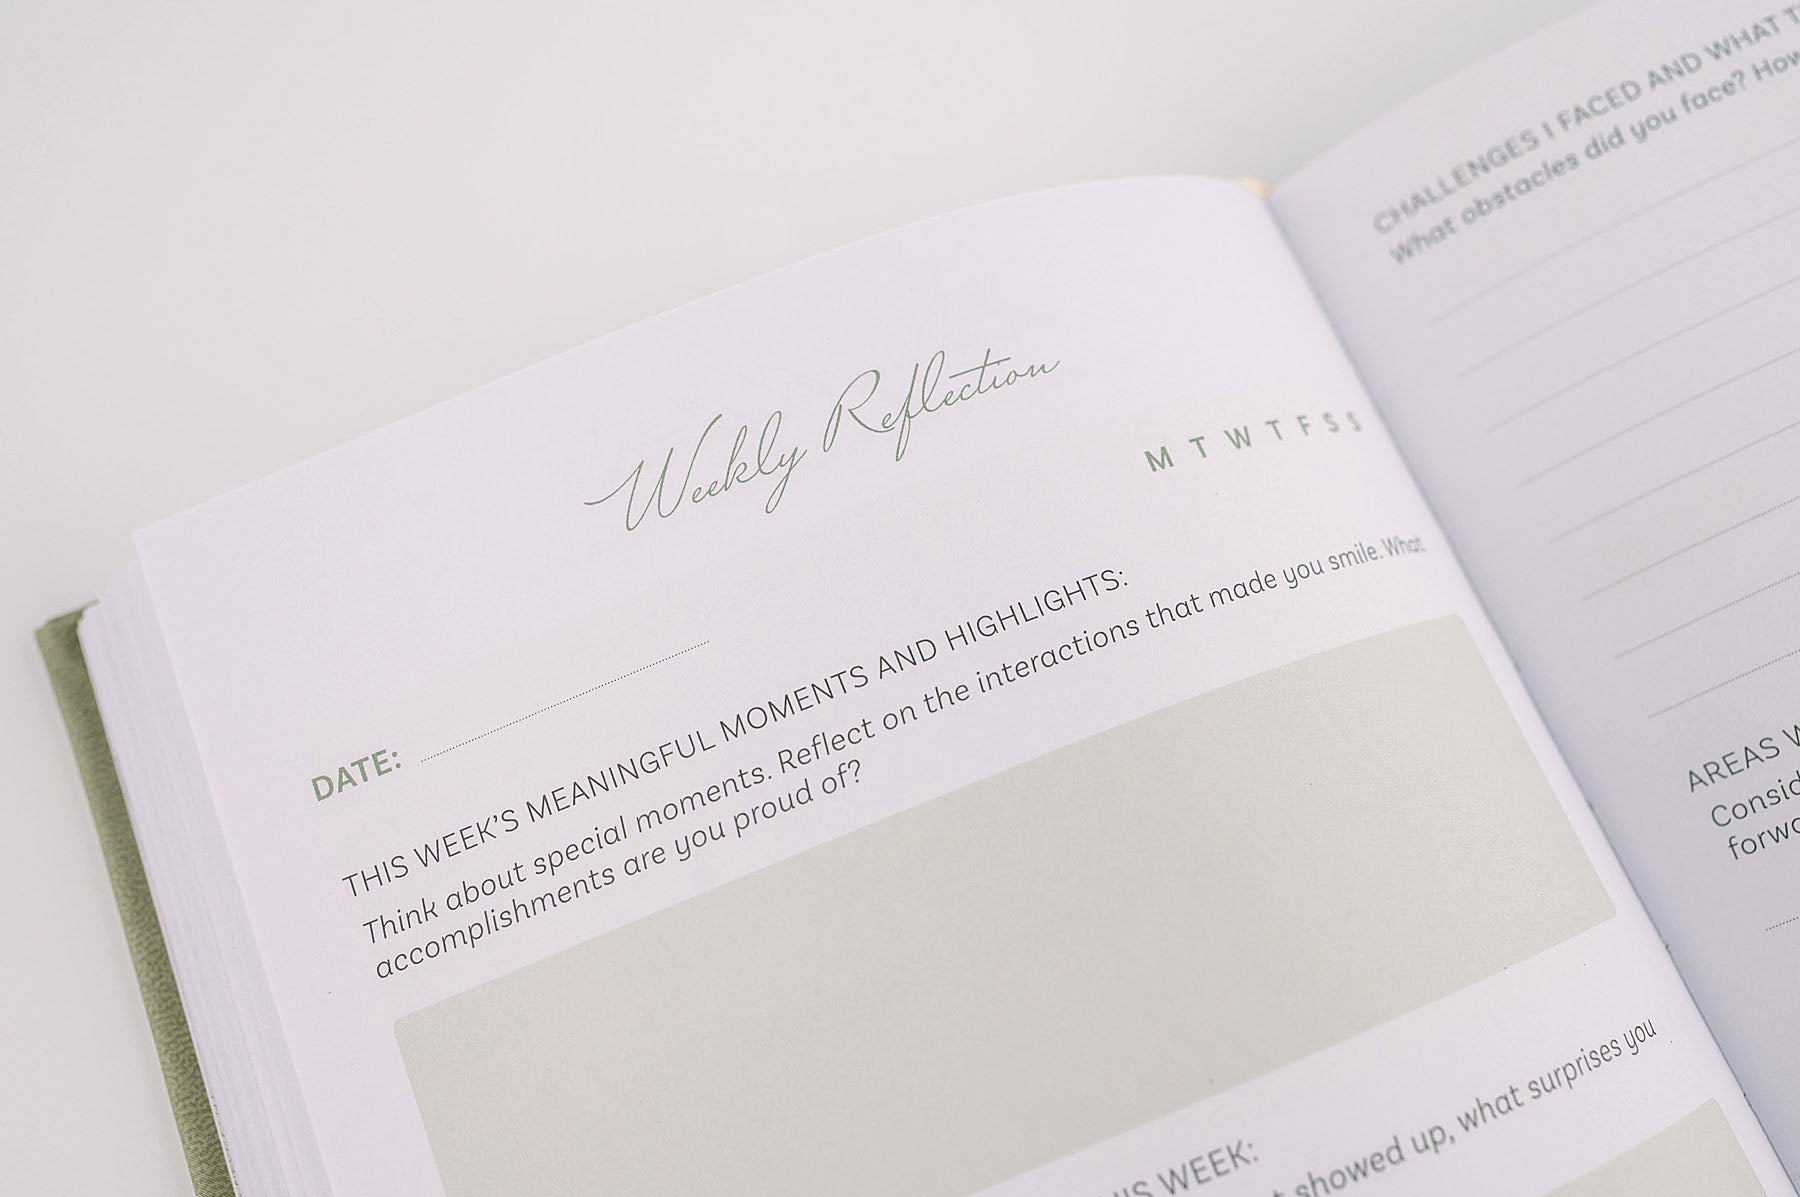 Weekly Reflection
M T W T F S S
DATE:
THIS WEEK'S MEANINGFUL MOMENTS AND HIGHLIGHTS:
Think about special moments. Reflect on the interactions that made you smile. What
accomplishments are you proud of?
WEEK:
showed up, what surprises you
CHALLENGES I FACED AND WHAT
What obstacles did you face? How
AREAS